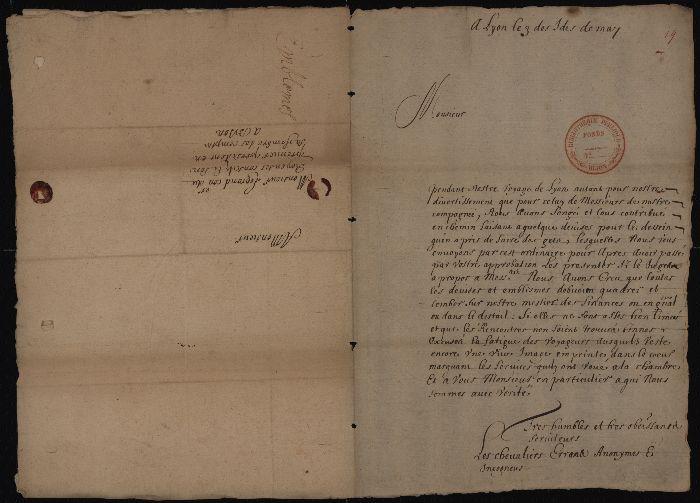 A Lyon le 3 des Ides de may
19
Monsieur
BIBLIOTHEQUE PUBLIQUE
FONDS
DIJON
pendant nostre voyage de Lyon autant pour nostre
divertissement que pour celuy de Messieurs de nostre
compagnie, Nous avons songé et tous contribué
en chemin faisant a quelque devises pour le dessein
quon a pris de faire des getz, lesquelles Nous vous
envoyons par cest ordinaire pour apres avoir passé
par vostre approbation les presenter Si le Jugez
a propos a Mess.rs Nous Avons Creu que toutes
les devises et emblesmes debvoient quadrer et
tomber sur nostre mestier des finances ou en gñal
ou dans le destail : Si elles ne sont assez bien limées
et que les Rencontres non soient trouvée bonnes
Excusez la fatigue des voyageurs ausquels reste
encore une vive Image emprinte dans le coeur
marquant les services quilz ont voué a la chambre
Et a Vous Monsieur en particulier a qui Nous
sommes avec verité
Tres humbles et tres obeissants
serviteurs
Les chevaliers Errants Anonymes Et
Incogneus
Emblemes
A Monsieur
Monsieur Legrand con.er du
Roy
en
la Chambre des comptes
A Dijon